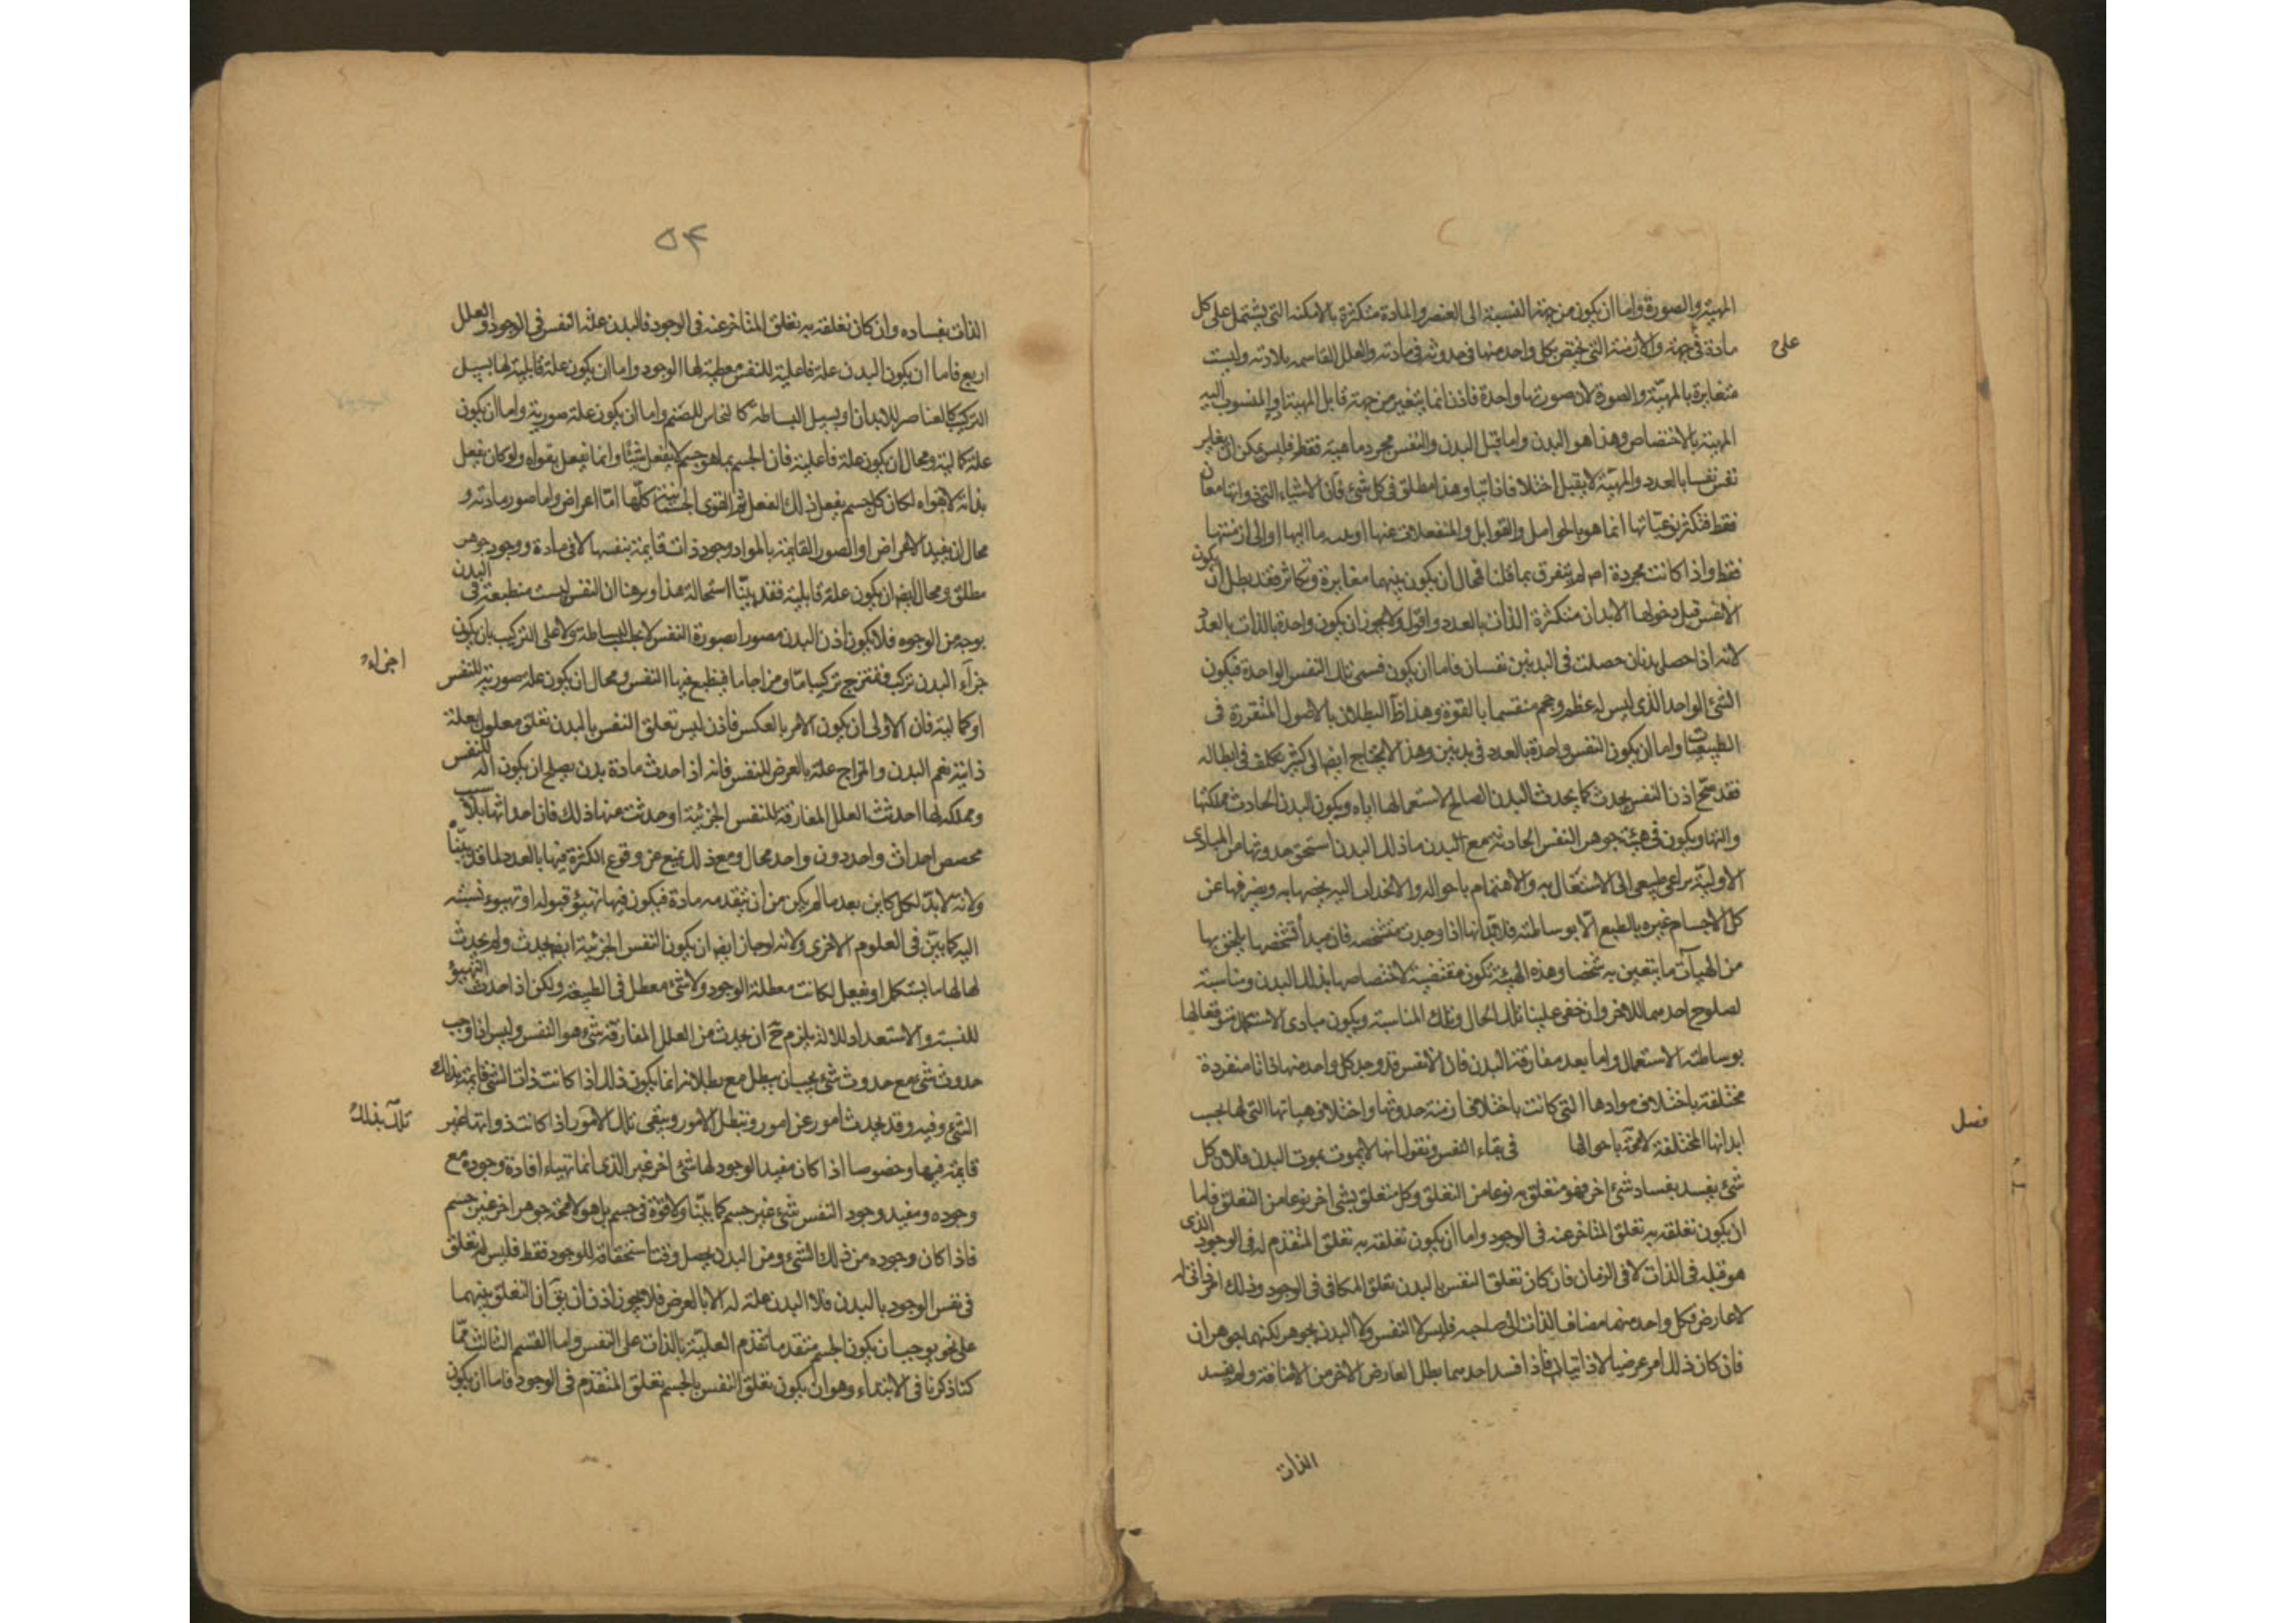 المهية والصورة واما ان يكون من جهة النسبة الى العنصر والمادة متكثرة بالامكنة التى يشتمل على كل
مادة فى جهة والازمنة التى يختص بكل واحد منها فى حدوثه فى مادته والعلل القاسمه بلادته وليست
على
متغايرة بالمهيّة والصورة لان صورتها واحدة فاذن انما يتغير من جهة قابل المهية او المنسوب اليه
المهية بالاختصاص وهذا هو البدن واما قبل البدن والنفس مجرد ماهية فقط فليس يمكن ان يغاير
نفس نفسا بالعدد والمهيّة لا يقبل اختلافا ذاتيا وهذا مطلق فى كل شئ فان الاشياء التى ذواتها معان
فقط فتكثر نوعيّاتها انما هو بالحوامل والقوابل والمنفعلات عنها او الى ازمنتها
فقط واذا كانت مجردة اصلا لم تتفرق بما قلنا فمحال ان يكون بينهما مغايرة وتكاثر فقد بطل ان يكون
الانفس قبل دخولها الابدان متكثرة الذات بالعدد واقول ولا يجوز ان يكون واحدة بالذات بالعدد
لانه اذا حصل بدنان حصلت فى البدنين نفسان فاما ان يكون قسمى تلك النفس الواحدة فيكون
الشئ الواحد الذى ليس له عظم وحجم منقسما بالقوة وهذا ظ البطلان بالاصول المتقررة فى
الطبيعيات واما ان يكون النفس واحدة بالعدد فى بدنين وهذا لا يحتاج ايضا الى كثير تكلف فى ابطاله
فقد صح اذن النفس يحدث كما يحدث البدن الصالح لاستعمالها اياه ويكون البدن الحادث مملكتها
والتها ويكون فى هيئة جوهر النفس الحادثه مع البدن ما ذلك البدن استحق حدوثها من المبادى
الاوليّة نزاعى طبيعى الى الاشتغال به والاهتمام باحواله والانجذاب اليه يخصها به ويصرفها عن
كل الاجسام غيره بالطبع الا بوساطته فلابد انها اذا وجدت متشخصه فان مبدأ تشخصها يلحق بها
من الهيآت ما يتعين به شخصا وهذه الهيئة تكون مقتضية لاختصاصها بذلك البدن ومناسبة
لصلوح احدهما للاخر وان خفى علينا تلك الحال وتلك المناسبة ويكون مبادى الاستكمال متوقعا لها
بوساطته الاستعمال واما بعد مفارقة البدن فان الانفس قد وجد كل واحد منها ذاتا منفردة
مختلفة باختلاف موادها التى كانت باختلاف ازمنة حدوثها واختلاف هياتها التى لها بحسب
ابدانها المختلفة لا محة باحوالها فى بقاء النفس ونقول انها لا يموت بموت البدن فلان كل
فصل
شئ يفسد بفساد شئ اخر فهو متعلق به نوعا من التعلق وكل متعلق بشئ اخر نوعا من التعلق فاما
ان يكون تعلقه به تعلق المتاخر عنه فى الوجود واما ان يكون تعلقه به تعلق المتقدم له فى الوجود الذى
هو قبله فى الذات لا فى الزمان فان كان تعلق النفس بالبدن تعلق المكافى فى الوجود وذلك امر ذاتى له
لا عارض فكل واحد منهما مضاف الذات الى صاحبه فليس لا النفس ولا البدن بجوهر لكنهما جوهران
فان كان ذلك امر عرضيا لا ذاتيا فاذا فسد احدهما بطل العارض الاخر من الاضافة ولم يفسد
الذات
۵۴
الذات بفساده وان كان تعلقه به تعلق المتاخر عنه فى الوجود فالبدن علة النفس فى الوجود والعلل
اربع فاما ان يكون البدن علة فاعلية للنفس معطية لها الوجود واما ان يكون علة قابلية لها بسبيل
التركيب كالعناصر للابدان او بسبيل البساطة كالنحاس للصنم واما ان يكون علة صورية واما ان يكون
علة كمالية ومحال ان يكون علة فاعلية فان الجسم بما هو جسم لا يفعل شيئا وانما يفعل بقواه ولو كان يفعل
بذاته لا بقواه لكان كل جسم يفعل ذلك الفعل ثم القوى الجسمانية كلّها امّا اعراض واما صور مادته و
محال ان يفيد الاعراض او الصور القايمة بالمواد وجود ذات قايمة بنفسها لا فى مادة ووجود جوهر
مطلق ومحال ايضا ان يكون علة قابلية فقد بيّنا استحالة هذا وبرهنا ان النفس ليست منطبعة فى البدن
بوجه من الوجوه فلا يكون اذن البدن مصورا بصورة النفس لا بحسب البساطة ولا على التركيب بان يكون
جزآء البدن تركب وتمتزج تركيبا مّا ومزاجا ما فينطبع فيها النفس ومحال ان يكون علة صورية للنفس
اجزاء
او كمالية فان الاولى ان يكون الامر بالعكس فاذن ليس تعلق النفس بالبدن تعلق معلول بعلة
ذاتية نعم البدن والمزاج علة بالعرض للنفس فانه اذا حدث مادة بدن يصلح ان يكون الة للنفس
ومملكه لها احدثت العلل المفارقة للنفس الجزئية او حدثت منها ذلك فان احداثها بلا سبب
مخصص احداث واحد دون واحد محال ومع ذلك يمنع عن وقوع الكثرة فيها بالعدد لما قد بيّنا
ولانه لابدّ لكل كاين بعد ما لم يكن من ان يتقدمه مادة فيكون فيها تهيؤ قبوله او تهيوء نسبته
اليه كما بيّن فى العلوم الاخرى ولانه لو جاز ايضا ان يكون النفس الجزئية ايضا يحدث ولم يحدث
لها لها ما يستكمل او يفعل لكانت معطلة الوجود ولا شئ معطل فى الطبيعة ولكن اذا حدث التهيؤ
للنسبة والاستعداد للالة يلزم ح ان يحدث من العلل المفارقة شئ وهو النفس وليس اذا وجب
حدوث شئ مع حدوث شئ يجب ان يبطل مع بطلانه انما يكون ذلك اذا كانت ذات الشئ قايمة بذلك
الشئ وفيه وقد يحدث امور عن امور وتبطل الامور ويبقى تلك الامور اذا كانت ذواتها غير
تلك بذلك
قايمة فيها وخصوصا اذا كان مفيد الوجود لها شئ اخر غير الذى انما تهياء افادة وجوده مع
وجوده ومفيد وجود النفس شئ غير جسم كما بيّنا ولا قوّة فى جسم بل هو لا محة جوهر اخر غير جسم
فاذا كان وجوده من ذلك الشئ ومن البدن يحصل وقت استحقاقه للوجود فقط فليس له تعلق
فى نفس الوجود بالبدن فلا البدن علة له الا بالعرض فلا يجوز اذن ان يق ان التعلق بينهما
على نحو يوجب ان يكون الجسم متقدما تقدم العلية بالذات على النفس واما القسم الثالث ممّا
كنا ذكرنا فى الابتداء وهو ان يكون تعلق النفس بالجسم تعلق المتقدم فى الوجود فاما ان يكون